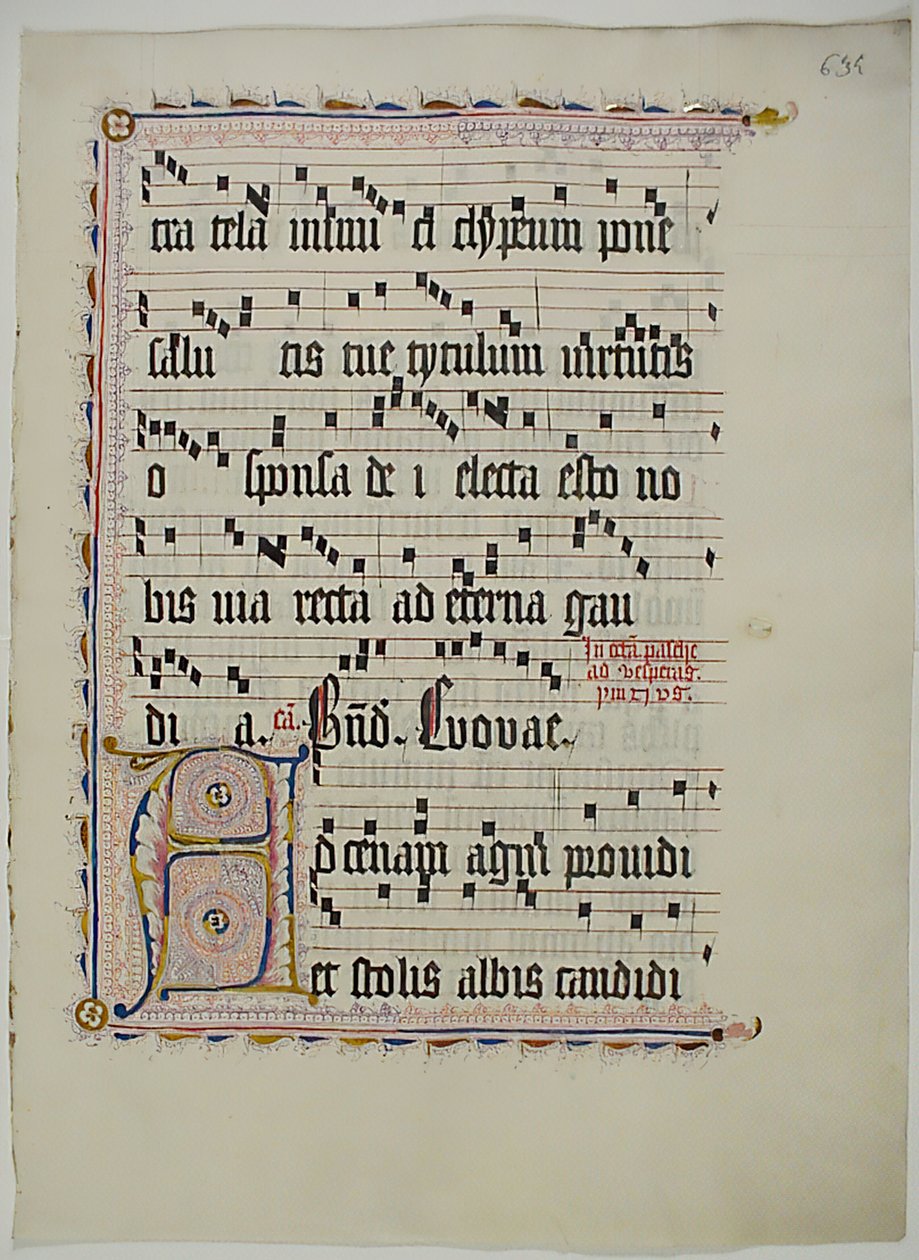 634
tra tela inimi ci clypeum pone
salu tis tue tytulum uirtutis
o sponsa de i electa esto no
bis uia recta ad eterna gau
di a. cā. Bñd. Euouae.
In octā. pasche
ad vesperas.
ymnus.
Ad cenam agni prouidi
et stolis albis candidi